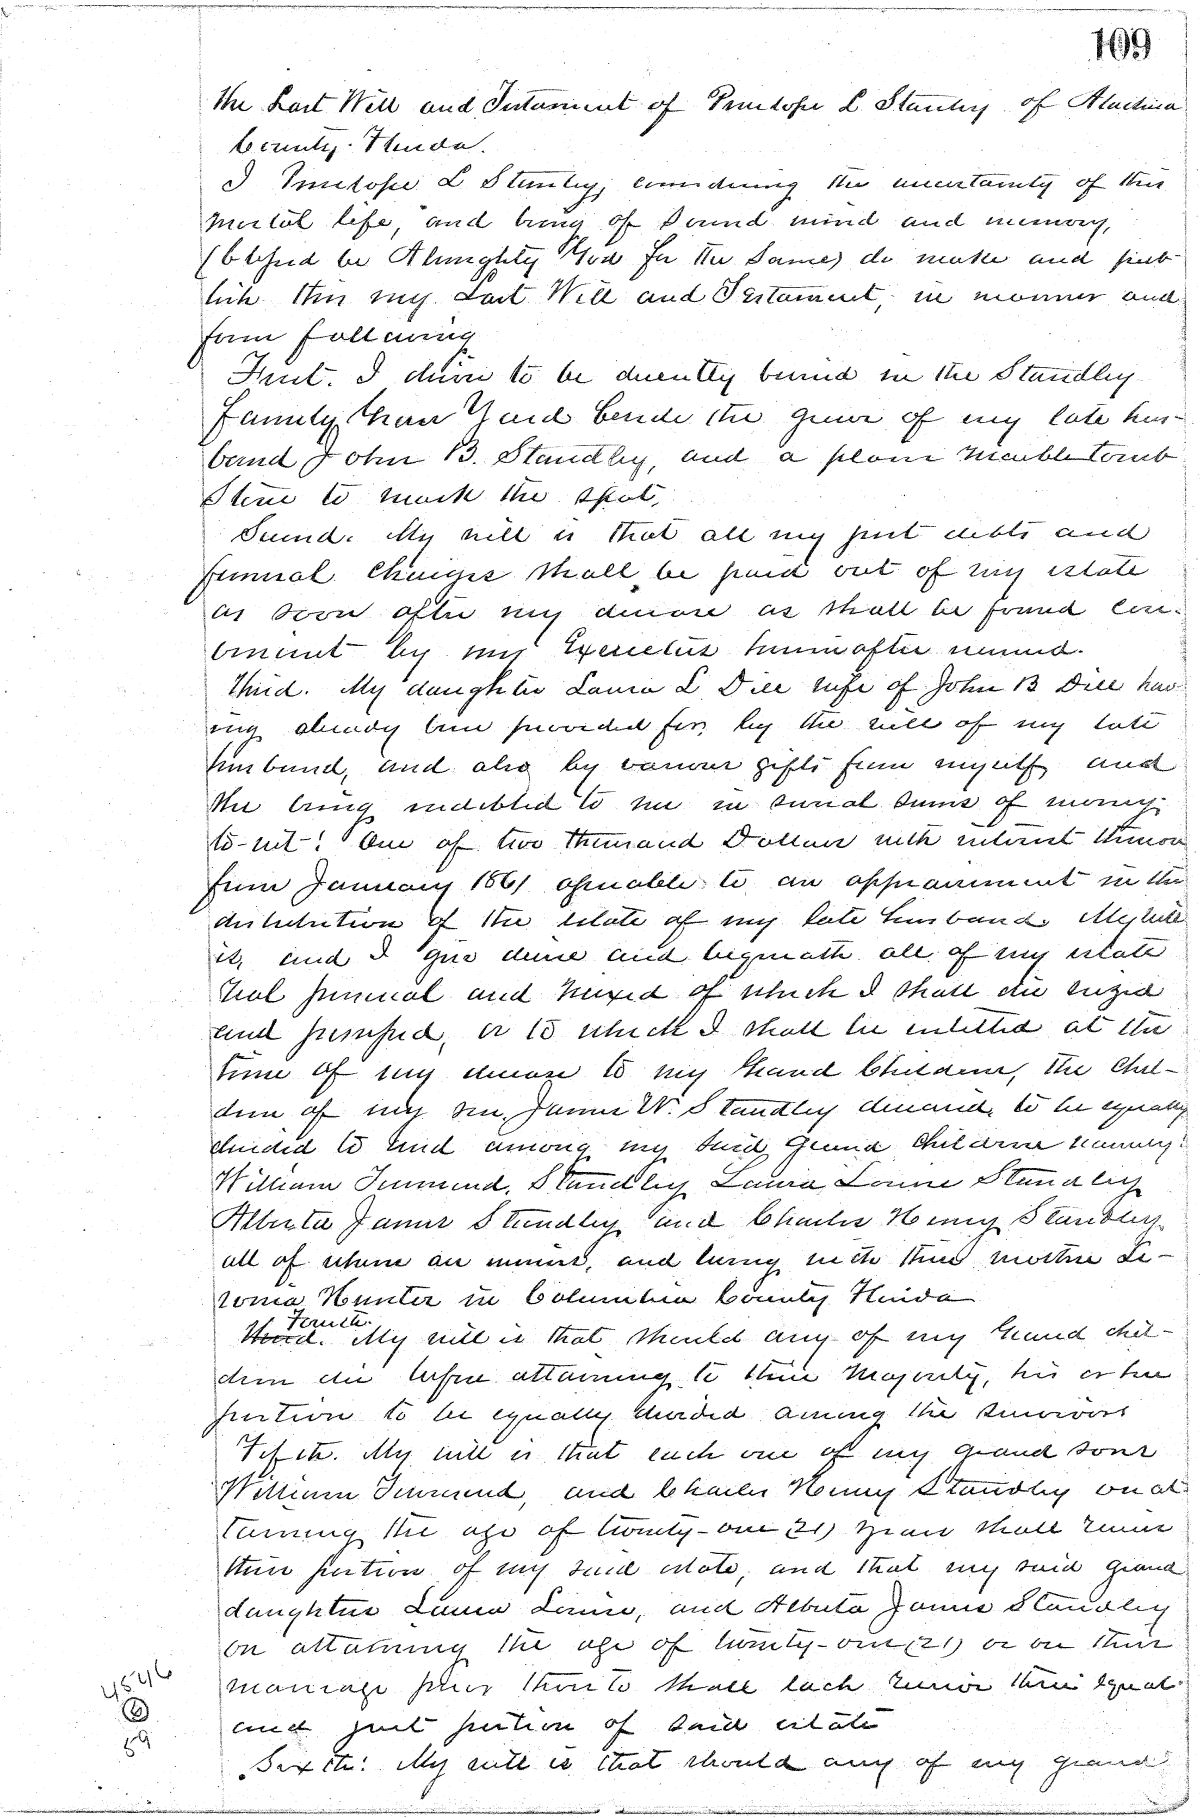 109
The Last Will and Testament of Penelope L Stanley of Alachua
County. Florida.
I Penelope L Stanley, considering the uncertainty of this
mortal life, and being of sound mind and memory,
(blessed be Almighty God for the same) do make and pub-
lish this my Last Will and Testament, in manner and
form following
First. I desire to be decently buried in the Standley
family Grave Yard beside the grave of my late hus-
band John B. Standley, and a plain marble tomb
Stone to mark the spot.
Second. My will is that all my just debts and
funeral Charges shall be paid out of my estate
as soon after my decease as shall be found con-
venient by my Executors hereinafter named.
Third. My daughter Laura L Dell wife of John B Dell hav-
ing already been provided for, by the will of my late
husband, and also by various gifts from myself and
she being indebted to me in several sums of money
to-wit: One of two thousand Dollars with interest thereon
from January 1861 agreeable to an appraisement in the
distribution of the estate of my late husband. My will
is, and I give devise and bequeath all of my estate
real personal and mixed of which I shall die seized
and possessed, or to which I shall be entitled at the
time of my decease to my Grand Children, the chil-
dren of my son, James W. Standley deceased, to be equally
divided to and among my said Grand Children namely:
William Townsend, Standley Laura Louise Standley
Alberta James Standley and Charles Henry Standley
all of whom are minors, and living with their mother Le-
Hunter in Columbia County Florida
Fourth.
Third. My will is that should any of my Grand chil-
dren die before attaining to their Majority, his or her
portion to be equally divided among the survivors
Fifth. My will is that each one of my grand sons
William Townsend, and Charles Henry Standley on at-
taining the age of twenty-one (21) years shall receive
their portion of my said estate, and that my said grand
daughters Laura Louise, and Alberta James Standley
on attaining the age of twenty-one (21) or on their
marriage prior thereto shall each receive their equal
and just portion of said estate
Sixth: My will is that should any of my grand
4546
59